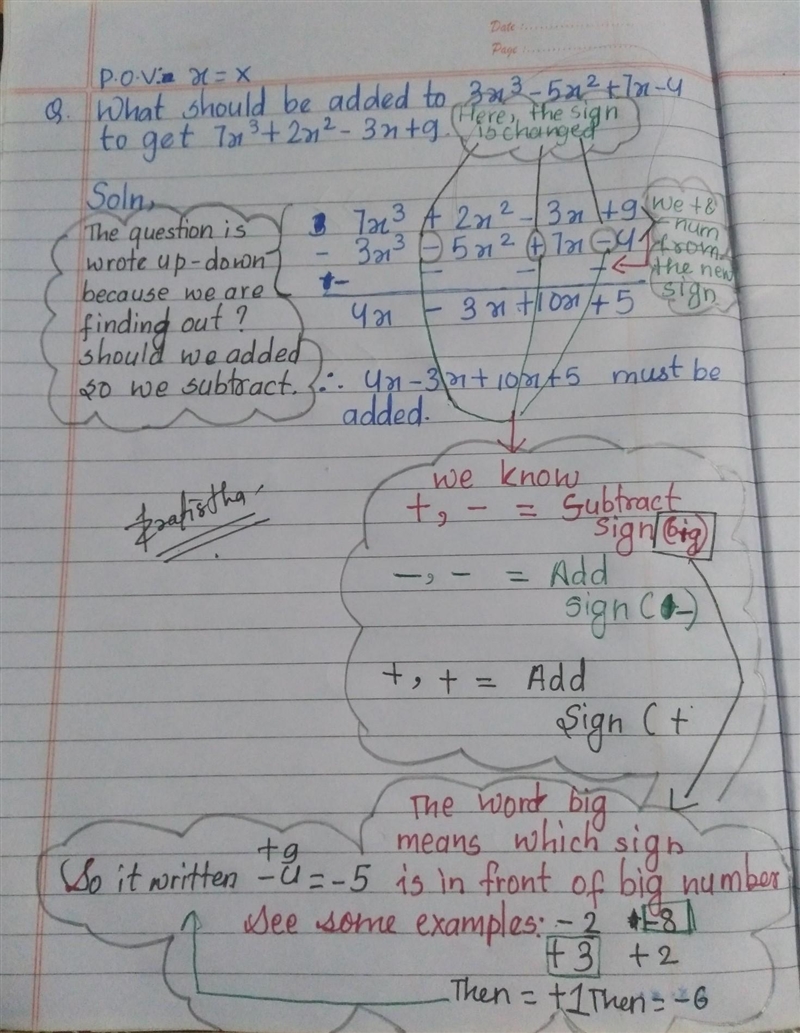 Date :
Page :
P.O.V:- x = X
Q. What should be added to 3x³ - 5x² + 7x - 4
to get 7x³ + 2x² - 3x + 9.
Here, the sign
is changed
Soln,
The question is
wrote up-down
because we are
finding out?
should we added
so we subtract.
7x³ + 2x² - 3x + 9
- 3x³ - 5x² + 7x - 4
- - +
4x - 3x + 10x + 5
We
num
from
the new
sign
∴ 4x - 3x + 10x + 5 must be
added.
Pratistha
we know
+, - = Subtract
Sign (big)
-, - = Add
Sign (-)
+, + = Add
Sign (+
The word big
means which sign
is in front of big number
+9
So it written -4 = -5
See some examples: - 2 -8
+ 3 + 2
Then = +1 Then = -6